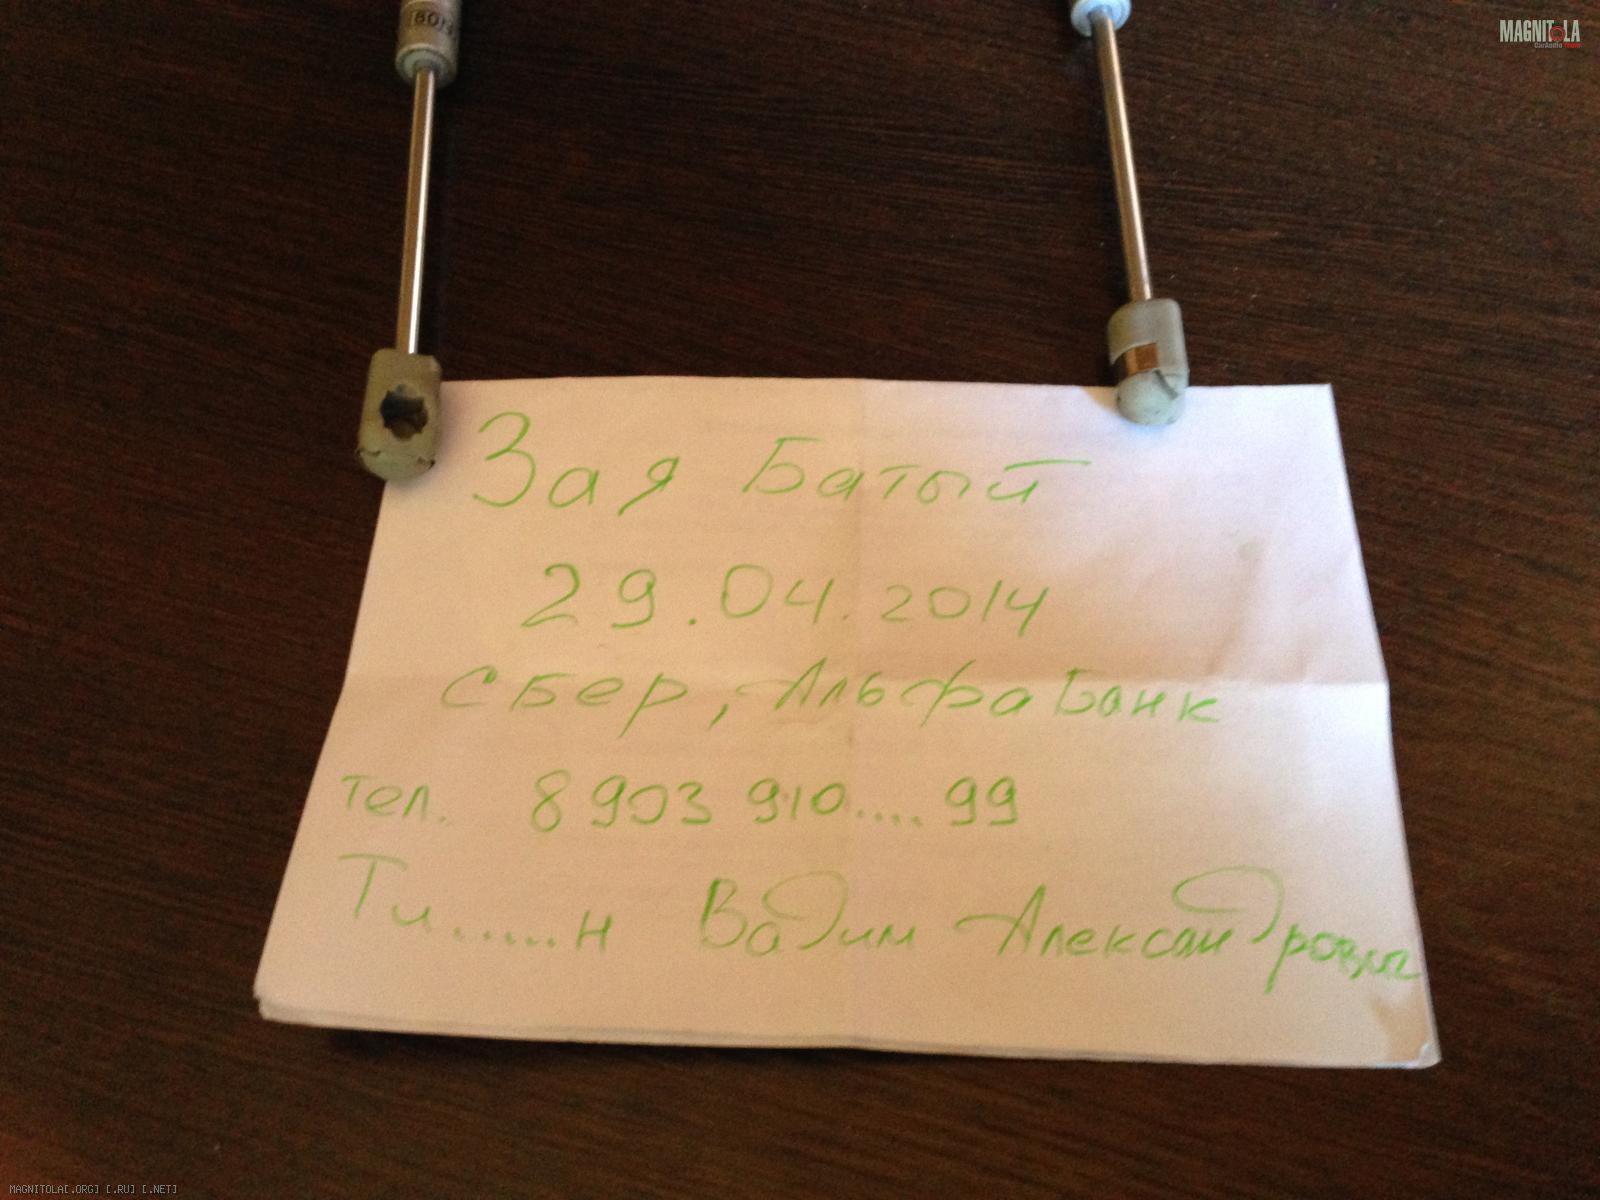 80N
MAGNITOLA
CarAudio Team
Зая Батый
29.04.2014
сбер, Альфабанк
тел. 8 903 910.... 99
Ти......н Вадим Александрович
MAGNITOLA[.ORG] [.RU] [.NET]